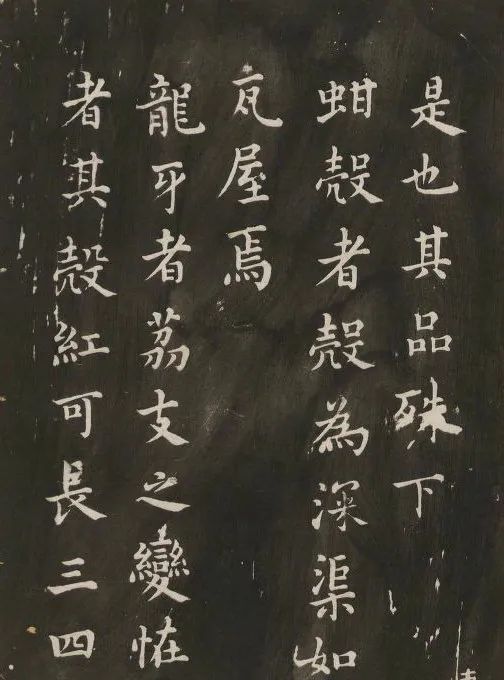 是也其品殊下
蚶殼者殼為深渠如
瓦屋焉
龍牙者荔支之變恠
者其殼紅可長三四